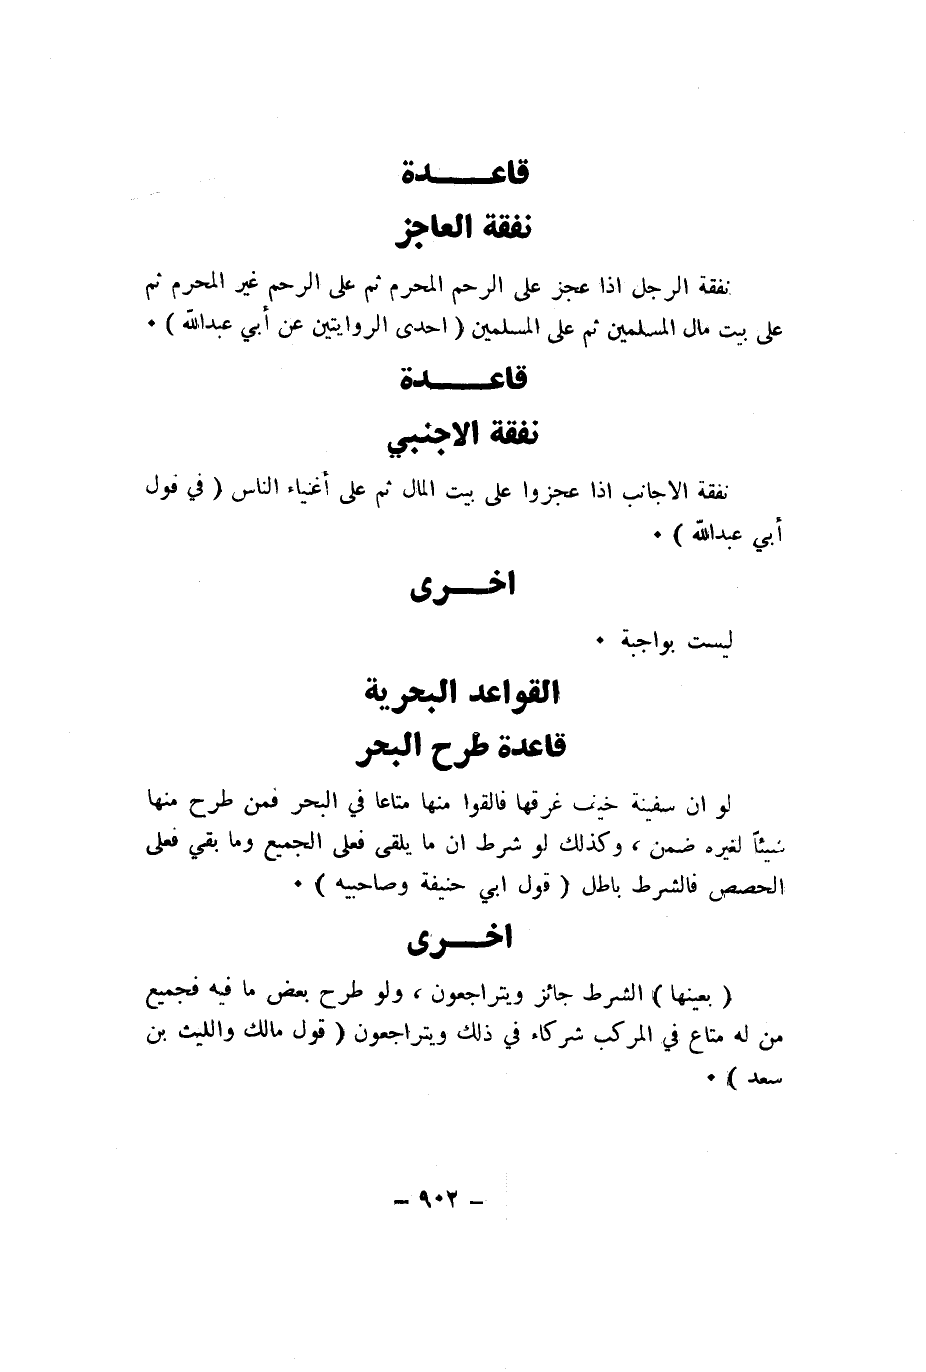 قاعـــــدة
نفقة العاجز
نفقة الرجل اذا عجز على الرحم المحرم ثم على الرحم غير المحرم ثم
على بيت مال المسلمين ثم على المسلمين ( احدى الروايتين عن أبي عبدالله ) ٠
قاعـــــدة
نفقة الاجنبي
نفقة الاجانب اذا عجزوا على بيت المال ثم على أغنياء الناس ( في قول
أبي عبدالله ) ٠
اخـــرى
ليست بواجبة ٠
القواعد البحرية
قاعدة طرح البحر
لو ان سفينة خيف غرقها فالقوا منها متاعا في البحر فمن طرح منها
شيئاً لغيره ضمن ، وكذلك لو شرط ان ما يلقى فعلى الجميع وما بقي فعلى
الحصص فالشرط باطل ( قول ابي حنيفة وصاحبيه ) ٠
اخـــرى
( بعينها ) الشرط جائز ويتراجعون ، ولو طرح بعض ما فيه فجميع
من له متاع في المركب شركاء في ذلك ويتراجعون ( قول مالك والليث بن
سعد ) ٠
– ٩٠٢ –